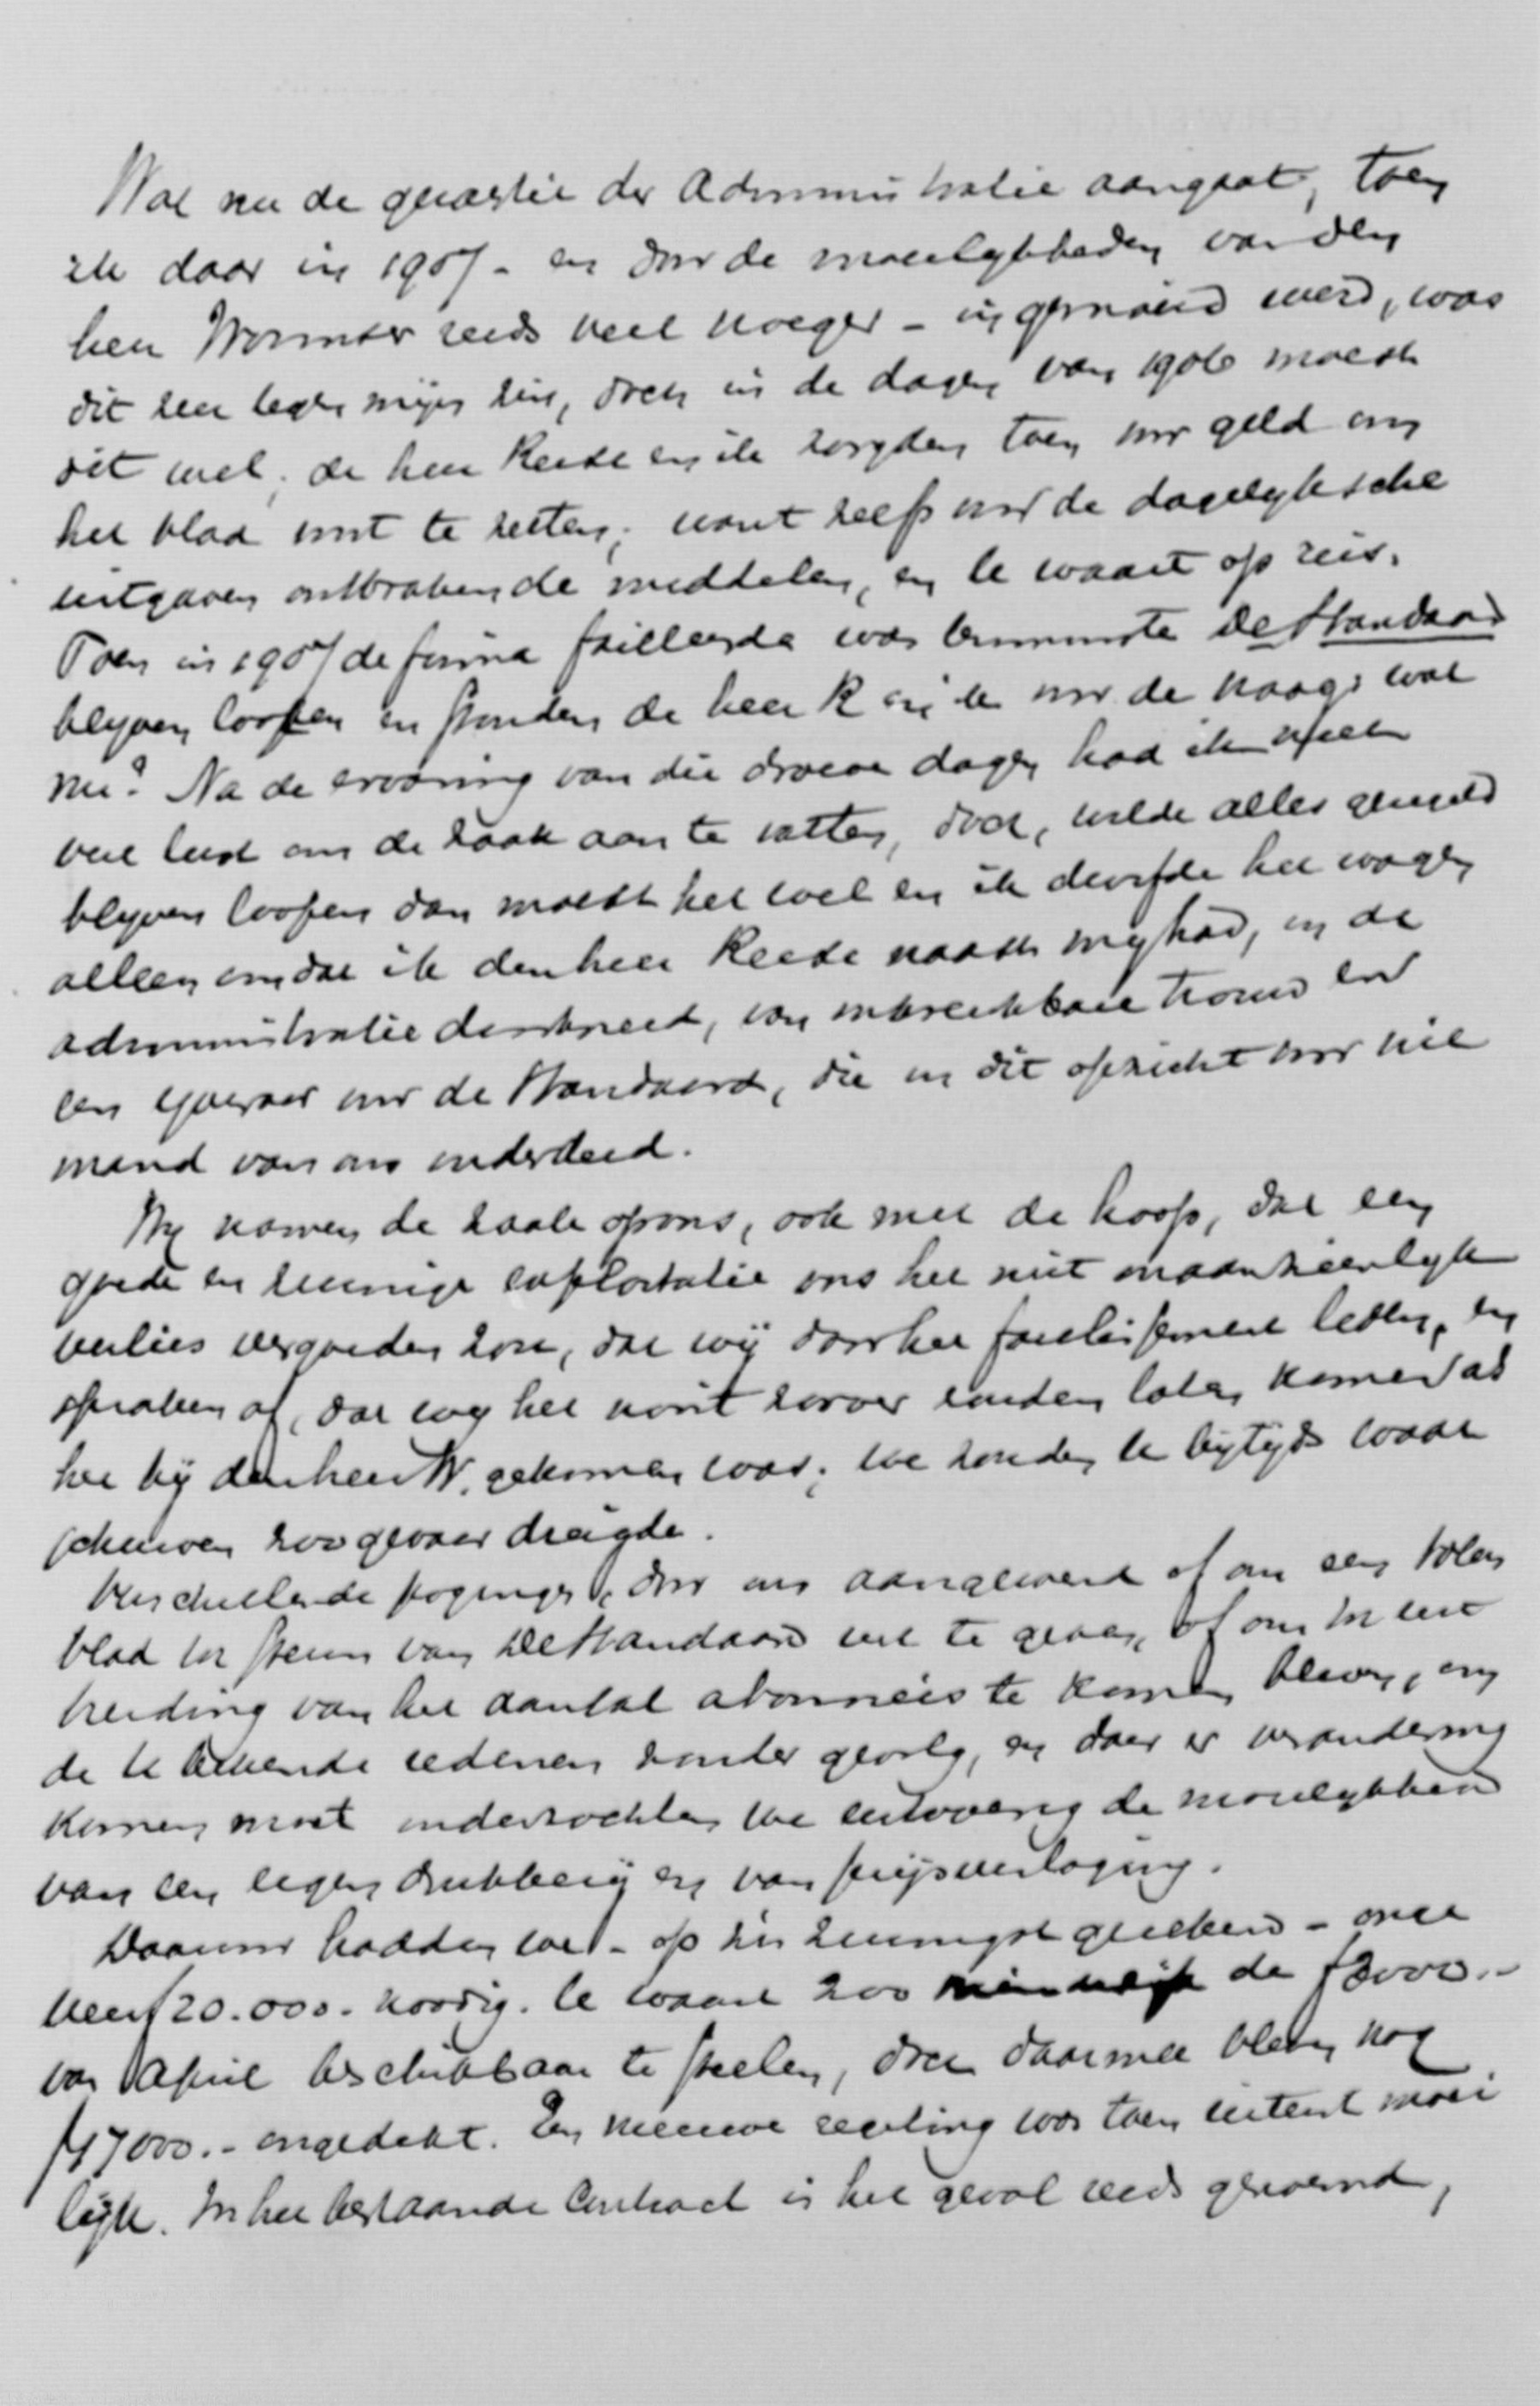 Wat nu de quaestie der Administratie aangaat, toen
ik daar in 1907 - en door de moeilykheden van den
heer Wormser reeds veel vroeger - in gemoeid werd, was
dit zeer tegen mijn zin, doch in de dagen van 1906 moest
dit wel; de heer Reede en ik zorgden toen voor geld om
het blad voort te zetten; want zelfs voor de dagelyksche
uitgaven ontbraken de middelen, en U waart op reis.
Toen in 1907 de firma failleerde was kwam de De Standaard
blyven loopen en stonden de heer R en ik voor de vraag: wat
nu? Na de ervaring van die droeve dagen had ik niet
veel lust om de zaak aan te vatten, doch, wilde alles geregeld
blyven loopen dan moest het wel en ik durfde het wagen
alleen omdat ik den heer Reede naast my had, in de
administratie doorkneed, van onkreukbare trouw en
een yveraar voor de Standaard, die in dit opzicht voor nie
mand van ons onderdeed.
Wy namen de zaak op ons, ook met de hoop, dat een
goede en zuinige exploitatie ons het niet onaanzienlyk
verlies vergoeden zou, dat wij door het faillissement leden, en
spraken af, dat wy het nooit zoover zouden laten komen als
het bij den heer W. gekomen was; we zouden U bytyds waar
schuwen zoo gevaar dreigde.
Verschillende pogingen, door ons aangewend of om een volks
blad tot steun van De Standaard uit te geven, of om tot uit
breiding van het aantal abonnees te komen bleven, om
de U bekende redenen zonder gevolg, en daar er verandering
komen moest onderzochten we eenvoudig de mogelykheid
van een eigen drukkerij en van prijsverlaging.
Daarvoor hadden we - op zijn zuinigst gerekend - onge
veer f 20.000.- noodig. U waart zoo de f 3000.-
van April beschikbaar te stellen, doch daarmee bleven nog
f 17000.- ongedekt. Een nieuwe regeling was toen uiterst moei
lijk. In het bestaande Contract is het geval reeds genoemd,